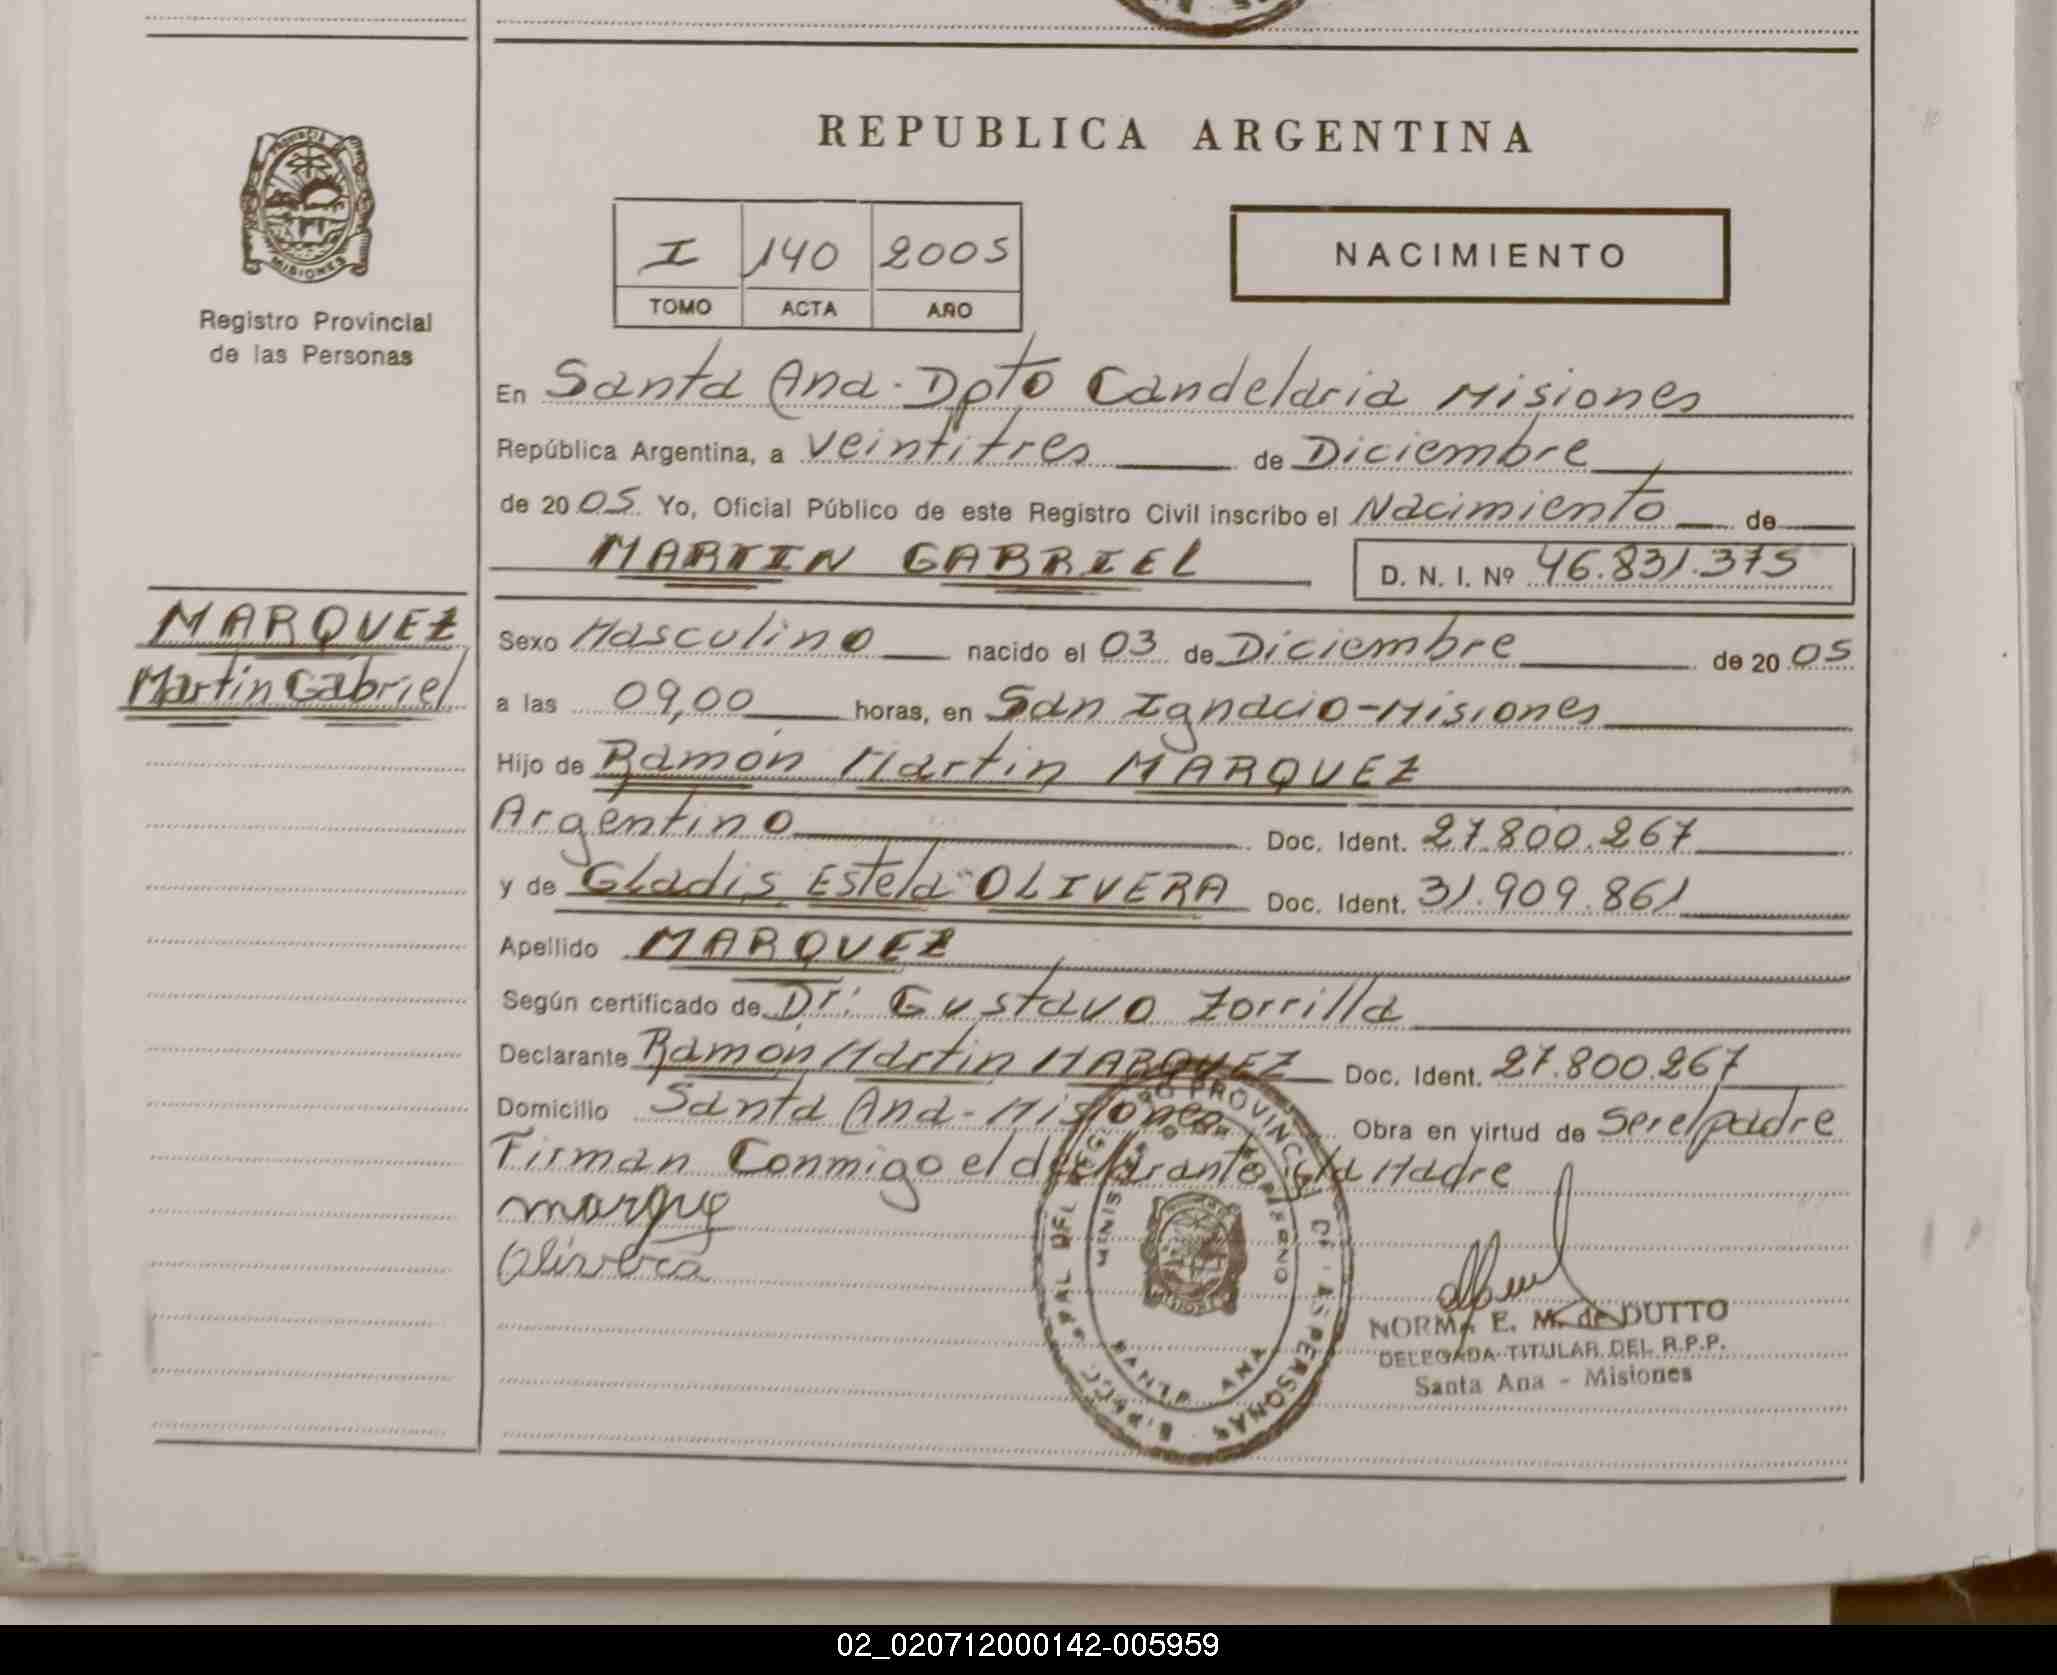 REPUBLICA ARGENTINA
PROVINCIA
MISIONES
Registro Provincial
de las Personas
I 140 2005
TOMO ACTA AÑO
NACIMIENTO
En Santa Ana - Dpto Candelaria Misiones
República Argentina, a veintitres de Diciembre
de 2005 Yo, Oficial Público de este Registro Civil inscribo el Nacimiento de
MARTIN GABRIEL D. N. I. Nº 46.831.375
MARQUEZ
Martin Gabriel
Sexo Masculino nacido el 03 de Diciembre de 2005
a las 09,00 horas, en San Ignacio - Misiones
Hijo de Ramón Martin MARQUEZ
Argentino Doc. Ident. 27.800.267
y de Gladis Estela OLIVERA Doc. Ident. 31.909.861
Apellido MARQUEZ
Según certificado de Dr: Gustavo Zorrilla
Declarante Ramon Martin MARQUEZ Doc. Ident. 27.800.267
Domicilio Santa Ana - Misiones Obra en virtud de ser el padre
Firman Conmigo el declarante y la Madre
marque
Olivera
SANTA ANA
MISIONES
NORMA E. M. de DUTTO
DELEGADA TITULAR DEL R.P.P.
Santa Ana - Misiones
02_020712000142-005959